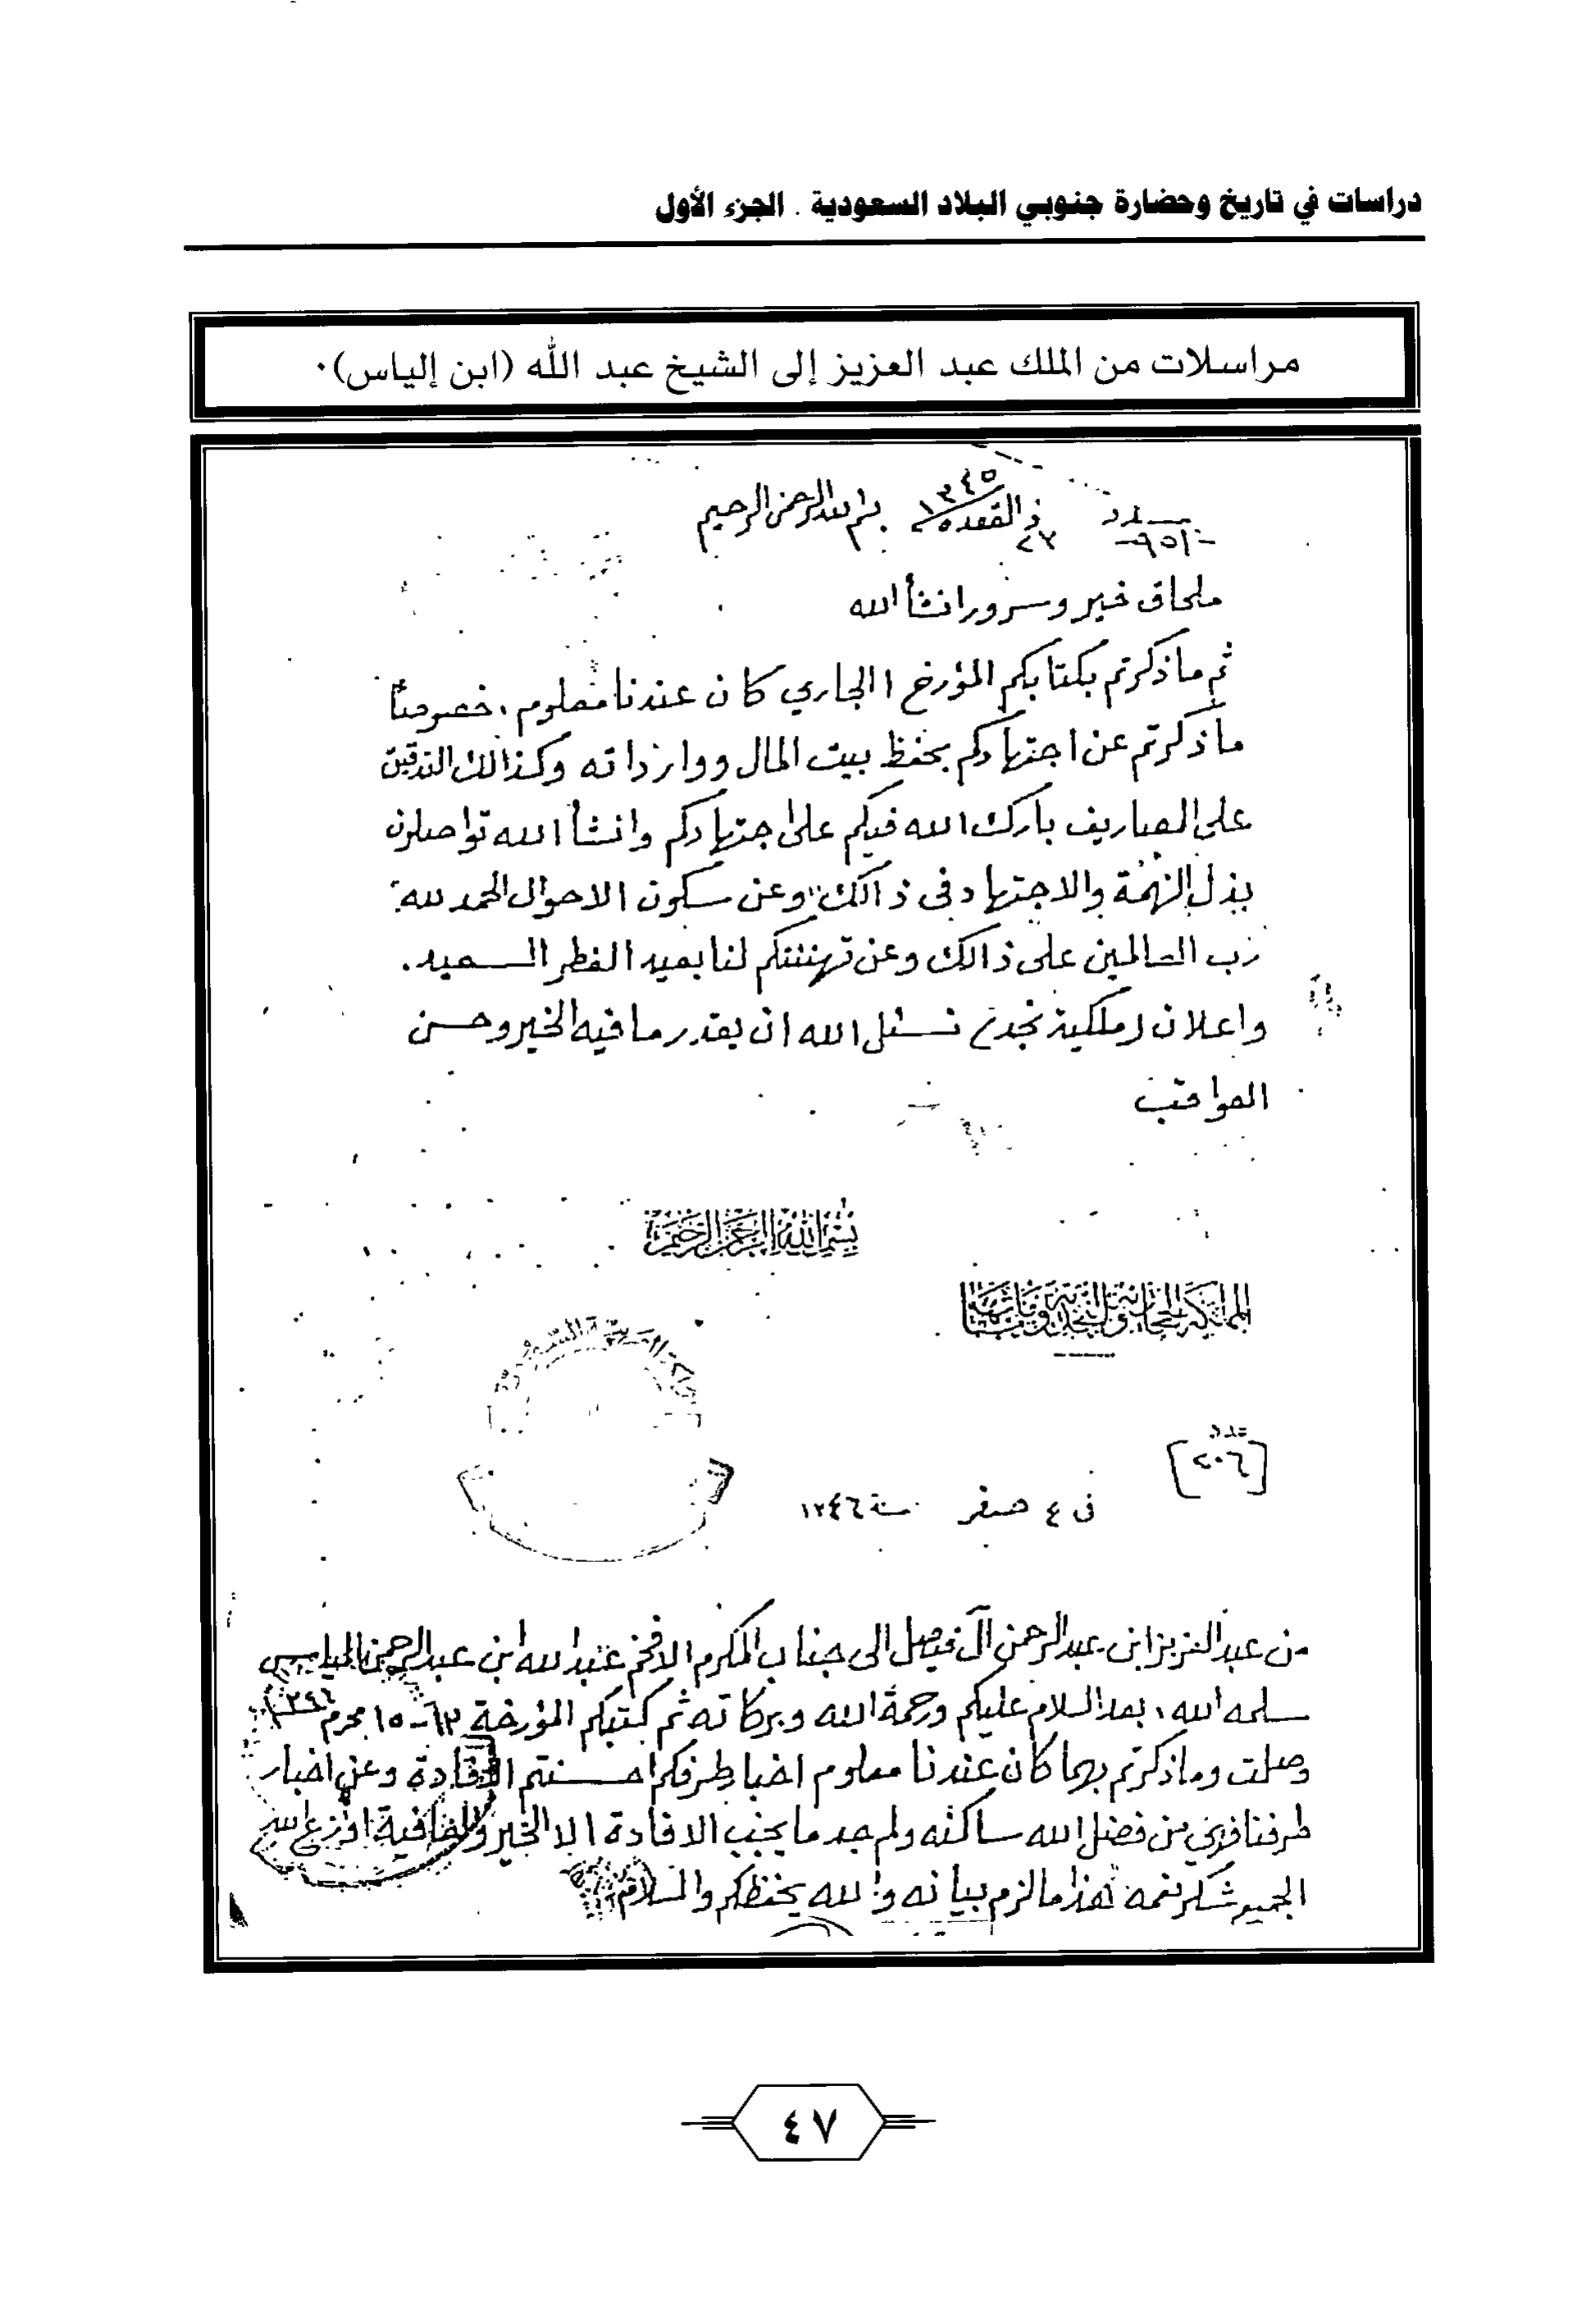 دراسات في تاريخ وحضارة جنوبي البلاد السعودية . الجزء الأول
مراسلات من الملك عبد العزيز إلى الشيخ عبد الله (ابن إلياس).
عدد ٩٥١ ٢٧ ذالقعده ١٣٤٥ بسم الله الرحمن الرحيم
ملحاق خير وسرور انشأ الله
ثم ماذكرتم بكتابكم المؤرخ ١ الجاري كان عندنا معلوم . خصوصاً
ماذكرتم عن اجتهادكم بحفظ بيت المال ووارداته وكذالك التدقيق
على المصاريف بارك الله فيكم على اجتهادكم وانشأ الله تواصلون
بذل الهمة والاجتهاد في ذالك وعن سكون الاحوال الحمد لله
رب العالمين على ذالك وعن تهنئتكم لنا بعيد الفطر السعيد .
واعلان ملكية نجد نسئل الله ان يقدر ما فيه الخير وحسن
العواقب
بسم الله الرحمن الرحيم
المملكة الحجازية والنجدية وملحقاتها
عدد
[٢٠٦]
في ٤ صفر سنة ١٣٤٦
من عبدالعزيز ابن عبدالرحمن آل فيصل الى جناب المكرم الافخم عبدالله ابن عبدالرحمن الياس
سلمه الله ، بعد السلام عليكم ورحمة الله وبركاته ثم كتبكم المؤرخة ١٥ محرم
وصلت وماذكرتم بهما كان عندنا معلوم اخبار طرفكم احسنتم الافادة وعن اخبار
طرفنا فهي من فضل الله ساكنه ولم جد ما يجب الافادة الا الخير والعافية اوزع الله
الجميع شكر نعمه هذا مالزم بيانه والله يحفظكم والسلام
٤٧